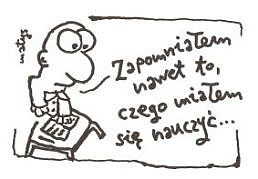 matys
Zapomniałem
nawet to,
czego miałem
się nauczyć...